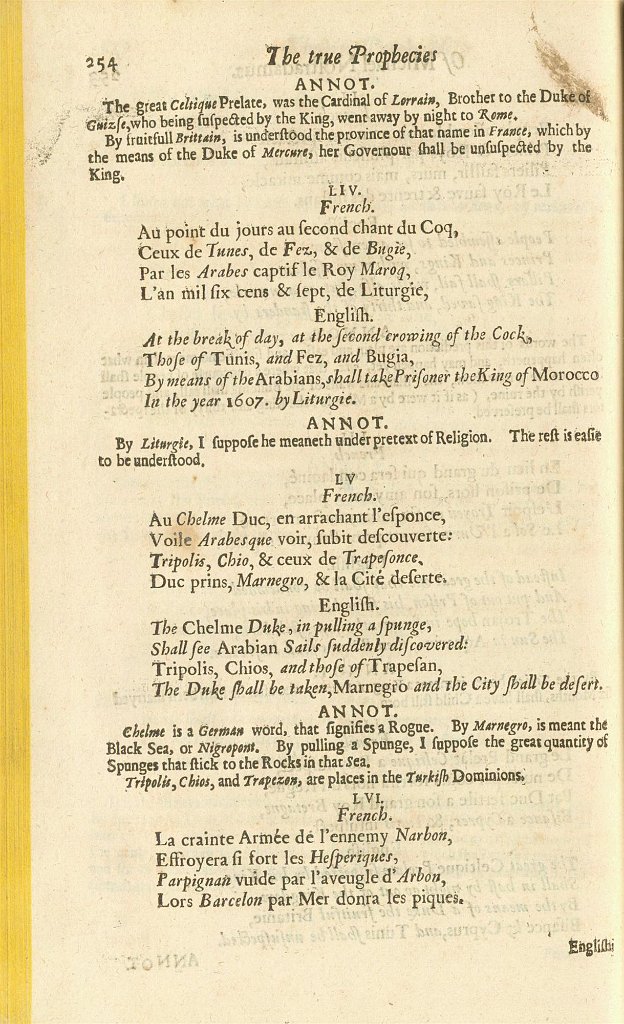 254 The true Prophecies
ANNOT.
The great Celtique Prelate, was the Cardinal of Lorrain, Brother to the Duke of
Guizſe, who being ſuſpected by the King, went away by night to Rome.
By fruitfull Brittain, is underſtood the province of that name in France, which by
the means of the Duke of Mercure, her Governour ſhall be unſuſpected by the
King.
LIV.
French.
Au point du jours au ſecond chant du Coq,
Ceux de Tunes, de Fez, & de Bugie,
Par les Arabes captif le Roy Maroq,
L'an mil ſix cens & ſept, de Liturgie,
Engliſh.
At the break of day, at the ſecond crowing of the Cock,
Thoſe of Tunis, and Fez, and Bugia,
By means of the Arabians, shall take Priſoner the King of Morocco
In the year 1607. by Liturgie.
ANNOT.
By Liturgie, I ſuppoſe he meaneth under pretext of Religion. The reſt is eaſie
to be underſtood.
LV
French.
Au Chelme Duc, en arrachant l'eſponce,
Voile Arabeſque voir, ſubit deſcouverte:
Tripolis, Chio, & ceux de Trapeſonce,
Duc prins, Marnegro, & la Cité deſerte.
Engliſh.
The Chelme Duke, in pulling a ſpunge,
Shall ſee Arabian Sails ſuddenly diſcovered:
Tripolis, Chios, and thoſe of Trapeſan,
The Duke ſhall be taken, Marnegro and the City ſhall be deſert.
ANNOT.
Chelme is a German word, that ſignifies a Rogue. By Marnegro, is meant the
Black Sea, or Nigropont. By pulling a Spunge, I ſuppoſe the great quantity of
Spunges that ſtick to the Rocks in that Sea.
Tripolis, Chios, and Trapezon, are places in the Turkiſh Dominions.
LVI.
French.
La crainte Armée de l'ennemy Narbon,
Effroyera ſi fort les Heſperiques,
Parpignan vuide par l'aveugle d'Arbon,
Lors Barcelon par Mer donra les piques.
Engliſh